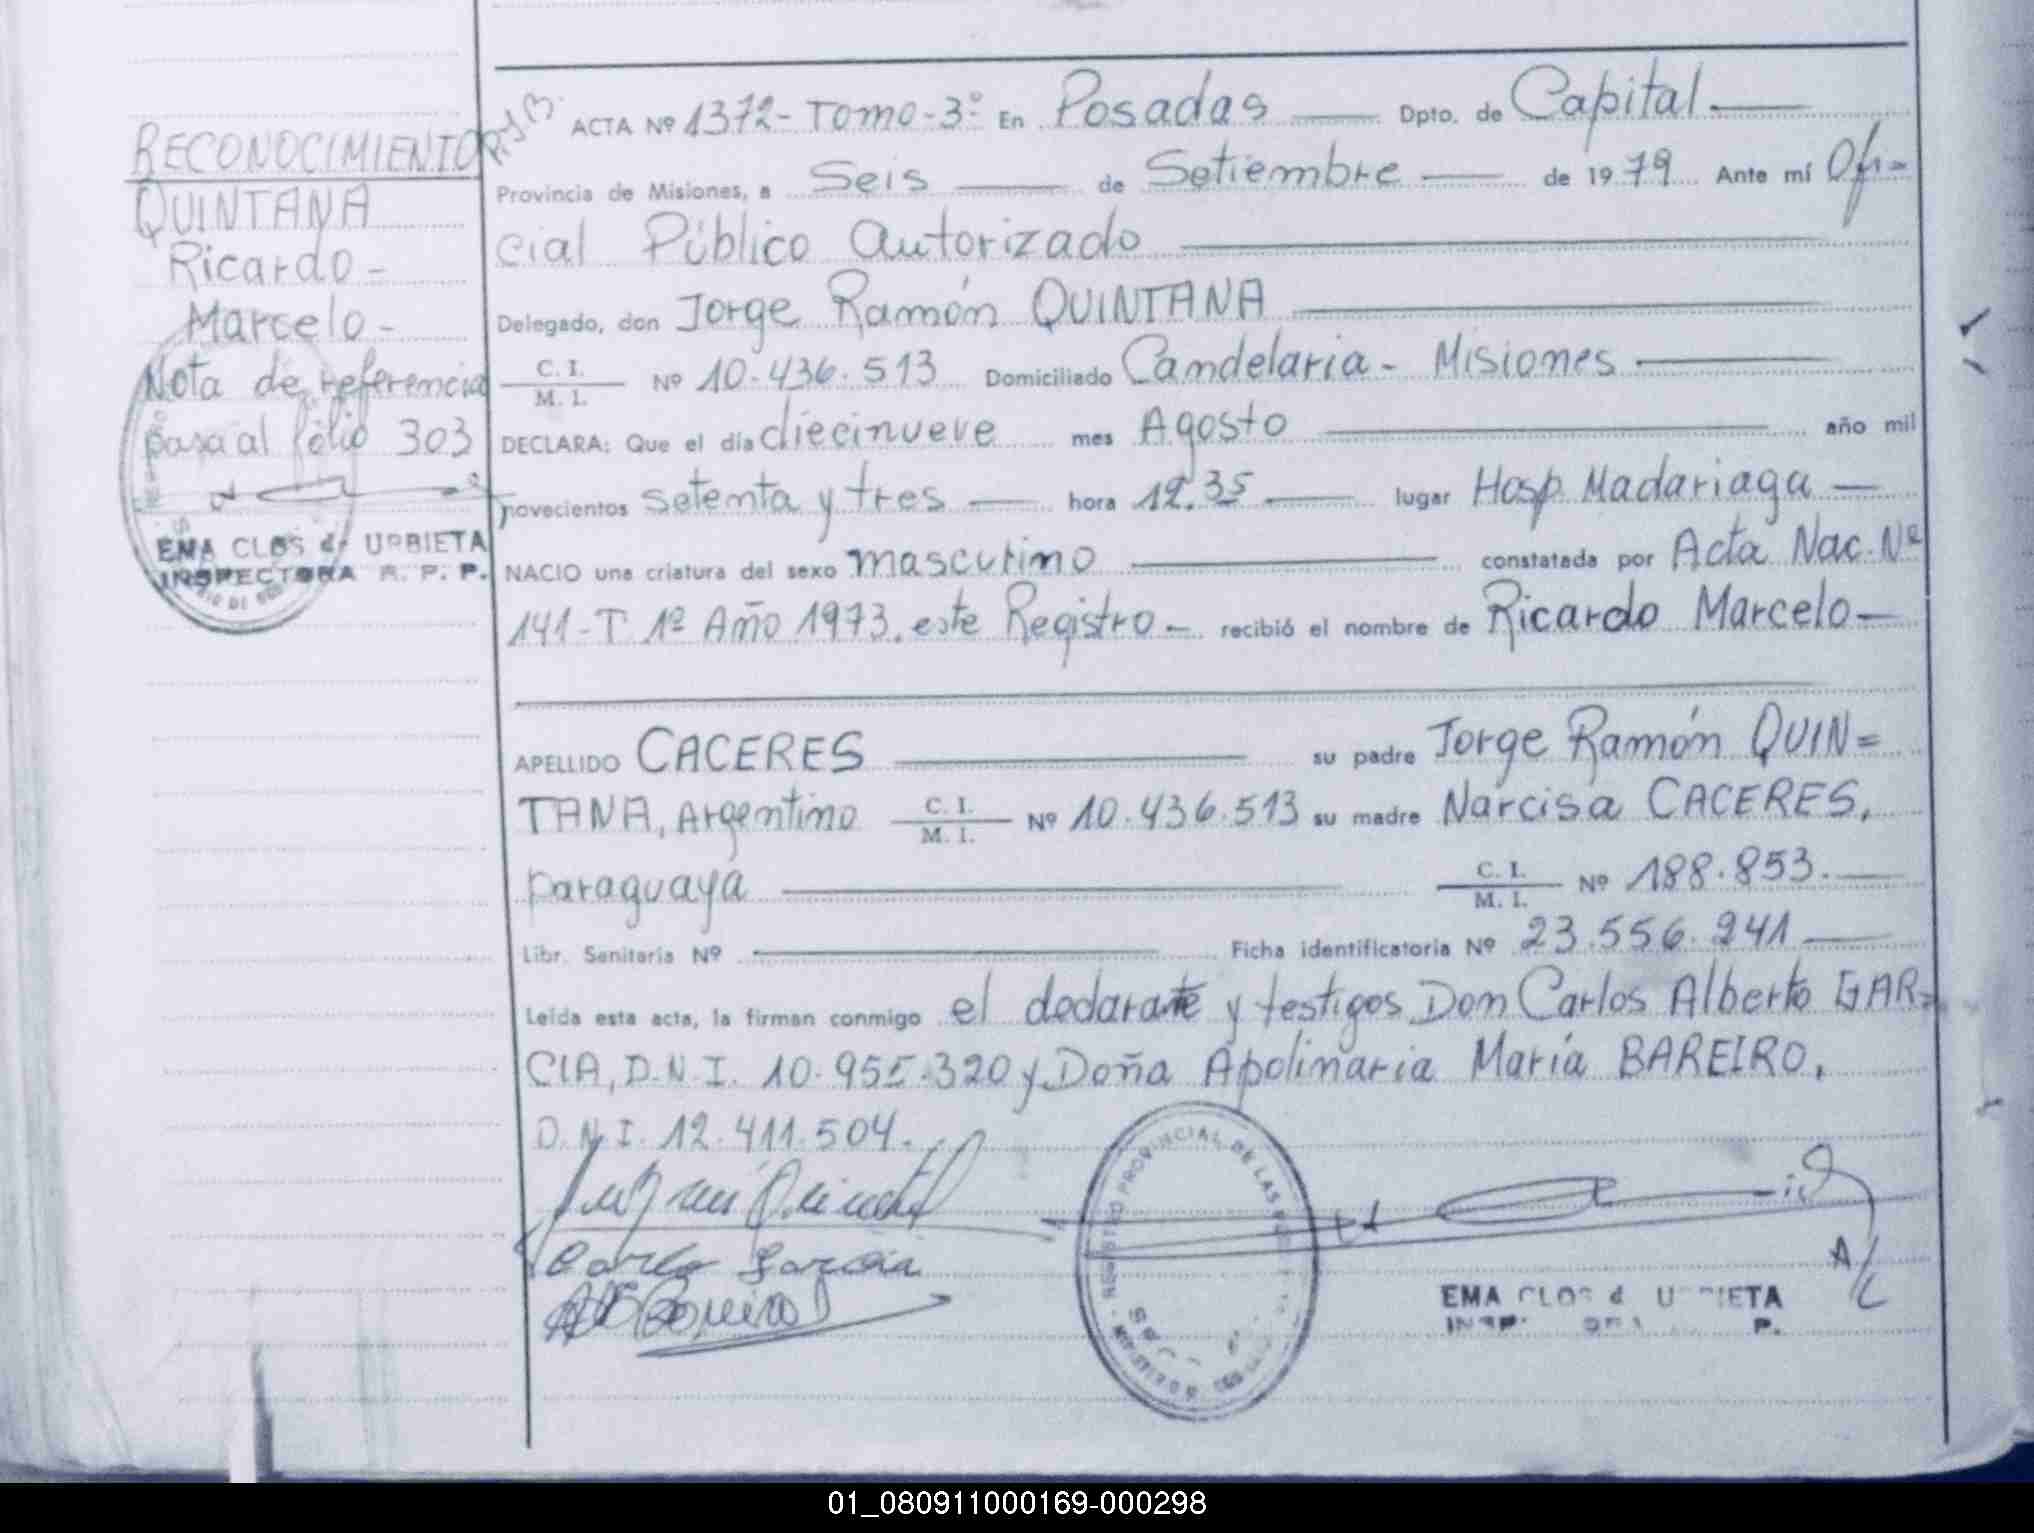 RECONOCIMIENTO
QUINTANA
Ricardo -
Marcelo -
Nota de referencia
pasa al fólio 303
EMA CLOS de URBIETA
INSPECTORA R. P. P.
ACTA Nº 1372 - Tomo - 3º En Posadas Dpto. de Capital
Provincia de Misiones, a Seis de Setiembre de 1979 Ante mí Ofi=
cial Público Autorizado
Delegado, don Jorge Ramón QUINTANA
C. I.
M. I.
Nº 10.436.513 Domiciliado Candelaria - Misiones
DECLARA: Que el día diecinueve mes Agosto año mil
novecientos setenta y tres hora 12.35 lugar Hosp. Madariaga
NACIO una criatura del sexo masculino constatada por Acta Nac. Nº
141 - T. 1º Año 1973. este Registro - recibió el nombre de Ricardo Marcelo
APELLIDO CACERES su padre Jorge Ramón QUIN=
TANA, Argentino C. I. M. I. Nº 10.436.513 su madre Narcisa CACERES,
paraguaya C. I. M. I. Nº 188.853.
Libr. Sanitaria Nº Ficha identificatoria Nº 23.556.241
Leída esta acta, la firman conmigo el declarante y testigos Don Carlos Alberto GAR=
CIA, D.N.I. 10.955.320 y Doña Apolinaria María BAREIRO,
D.N.I. 12.411.504.
Carlos Garcia
REGISTRO PROVINCIAL DE LAS
EMA CLOS d URBIETA
01_080911000169-000298